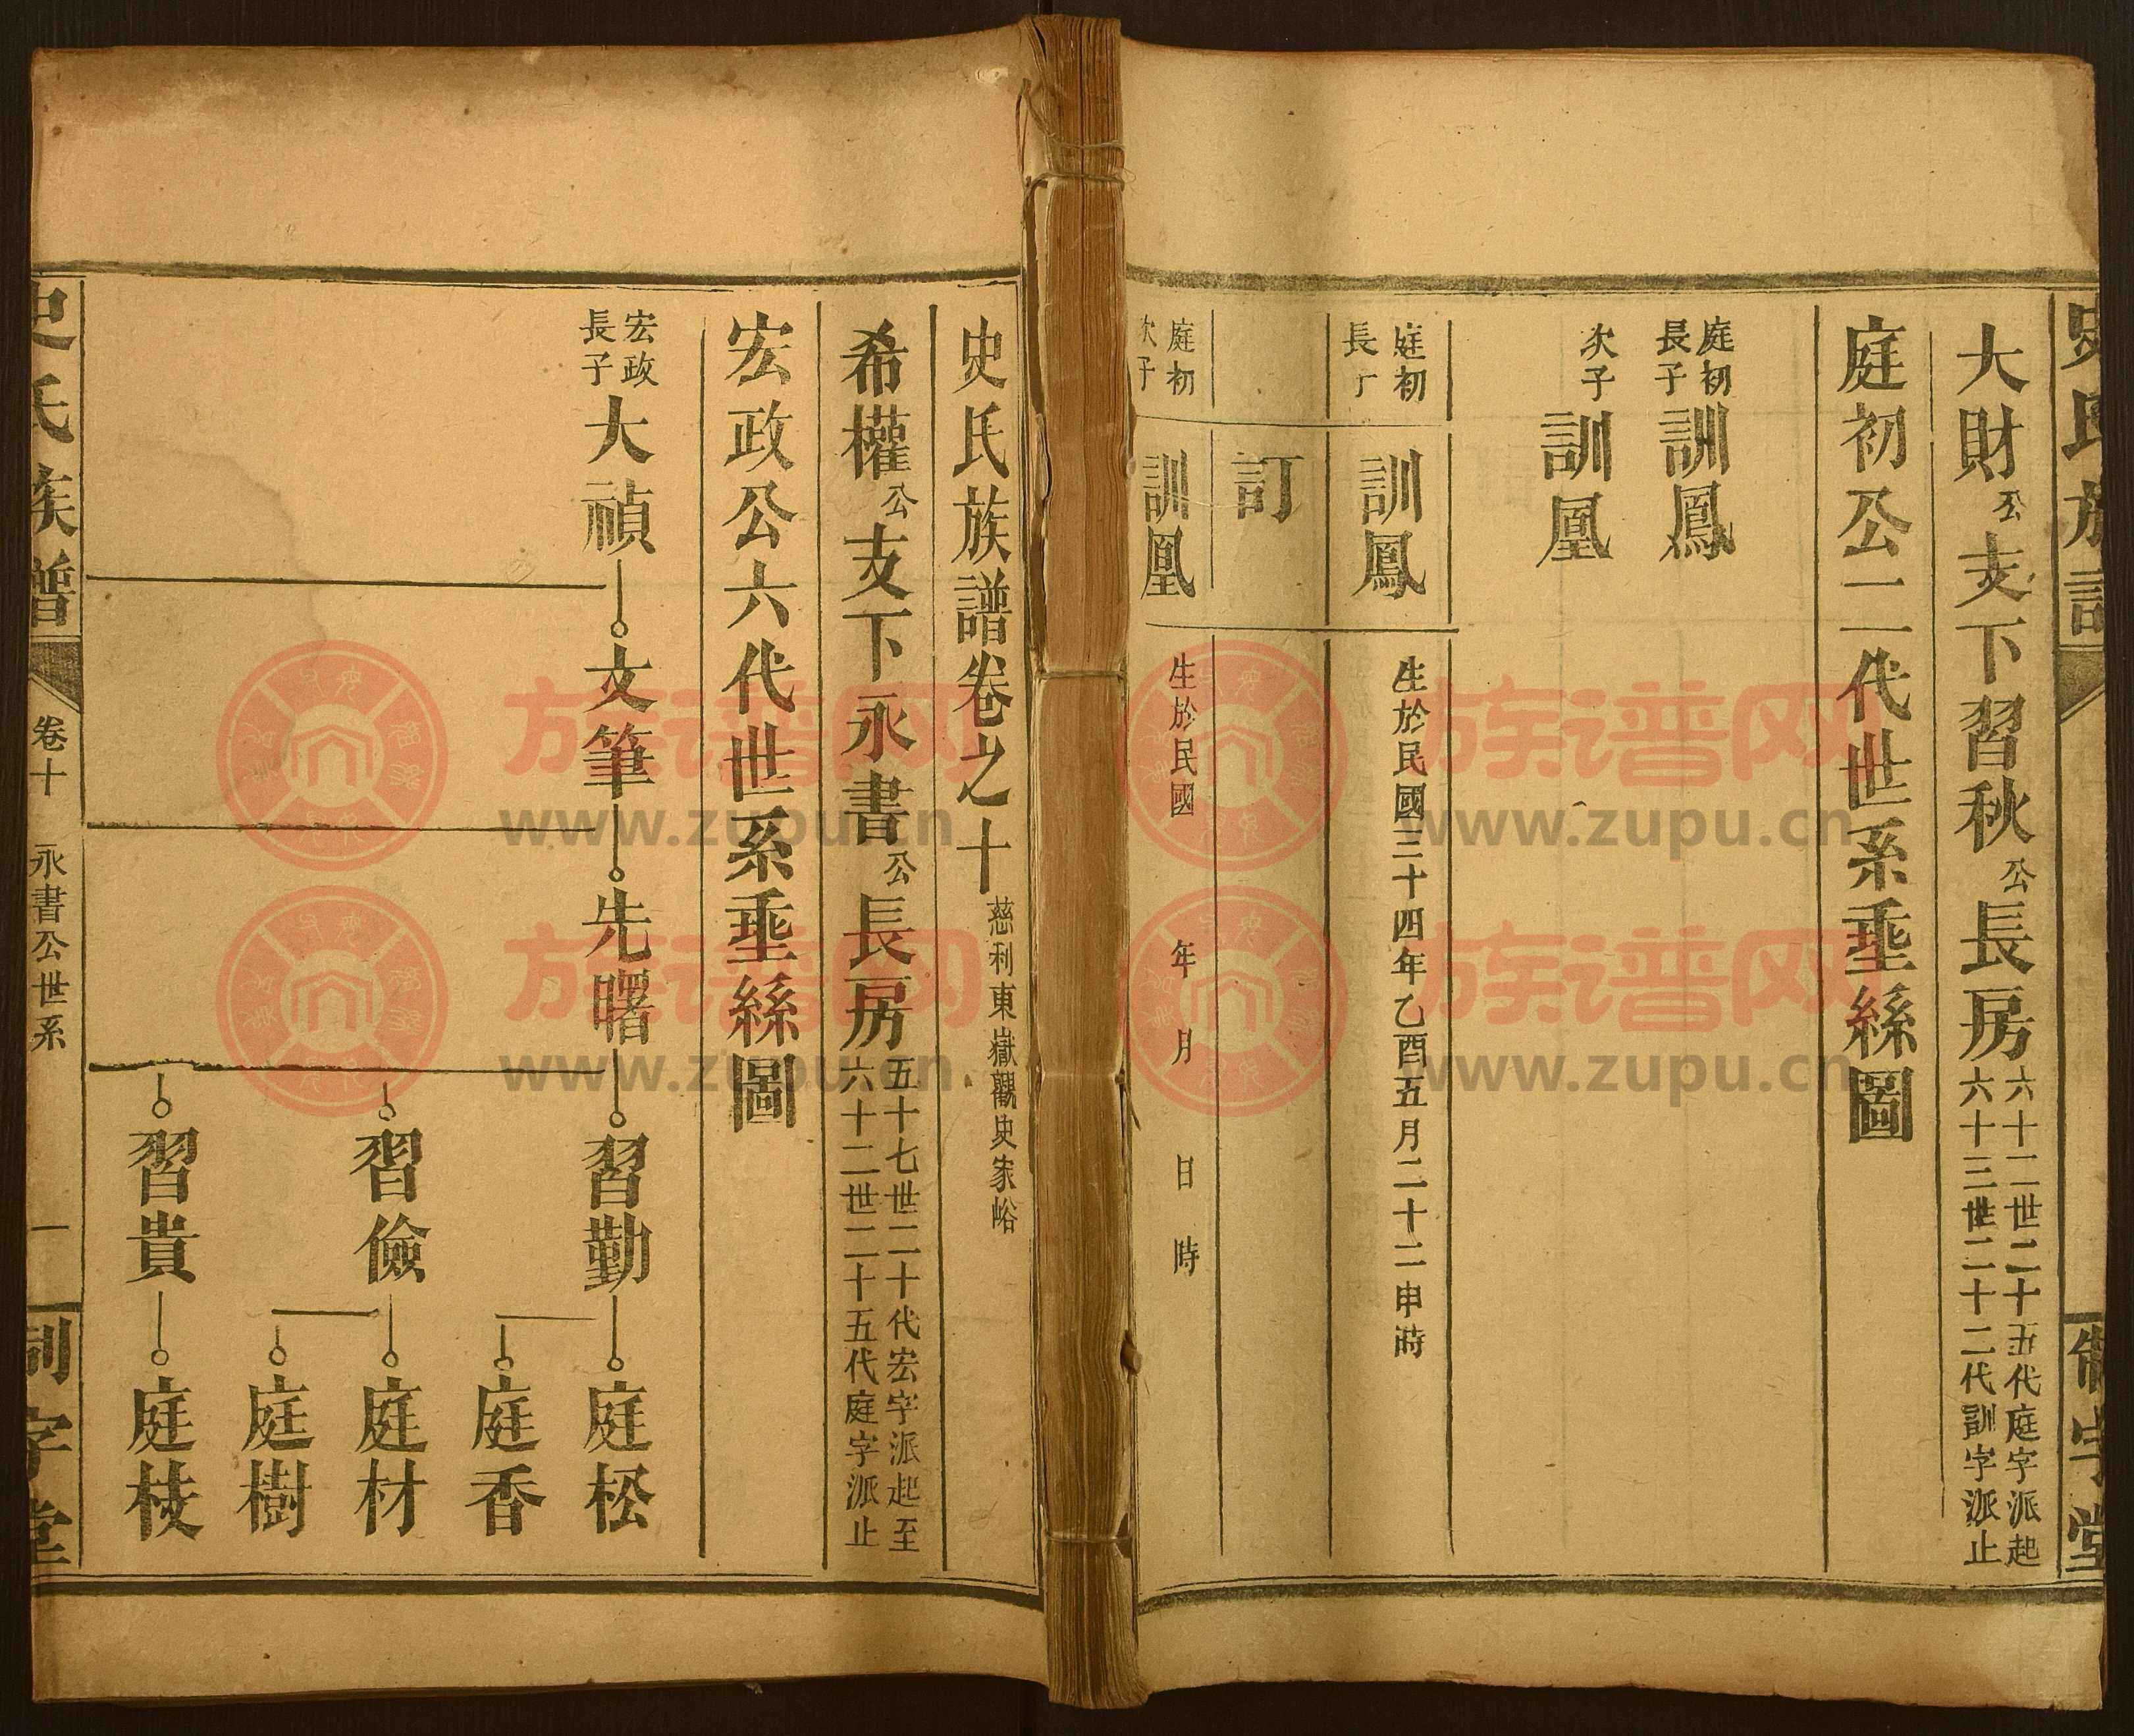 史氏族譜
制字堂
大財公支下習秋公長房
六十二世二十五代庭字派起
六十三世二十二代訓字派止
庭初公二代世系垂絲圖
庭初
長子
訓鳳
次子
訓凰
庭初
長
訓鳳
生於民國三十四年乙酉五月二十二申時
訂
庭初
次子
訓凰
生於民國 年 月 日 時
史氏族譜卷之十
慈利東嶽觀史家峪
希權公支下永書公長房
五十七世二十代宏字派起至
六十二世二十五代庭字派止
宏政公六代世系垂絲圖
宏政
長子
大禎
文筆
先曙
習勤
庭松
庭香
習儉
庭材
庭樹
習貴
庭枝
史氏族譜
卷十
永書公世系
一
制字堂
族谱网
www.zupu.cn
族谱网
www.zupu.cn
族谱网
www.zupu.cn
族谱网
www.zupu.cn